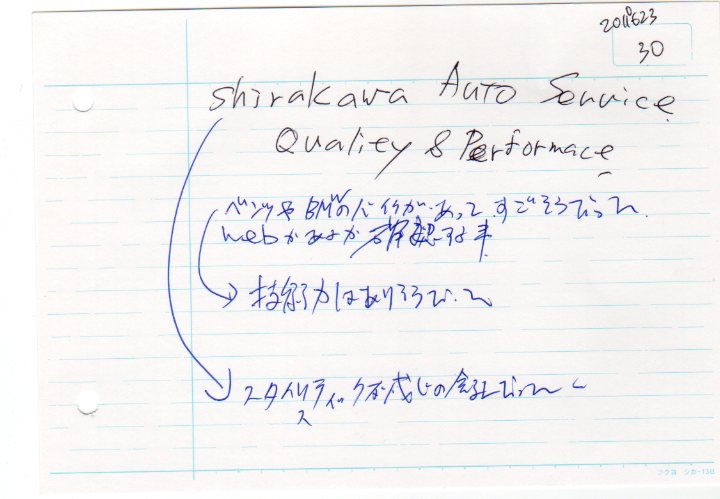 20110623
30
Shirakawa Auto Service
Quality & Performace
ベンツや BMWのバイクがあって、すごそうだった。
webがあるか確認する事
技術力はありそうだった
スタイリスティックな感じの会社だった
コクヨ シカ-13B